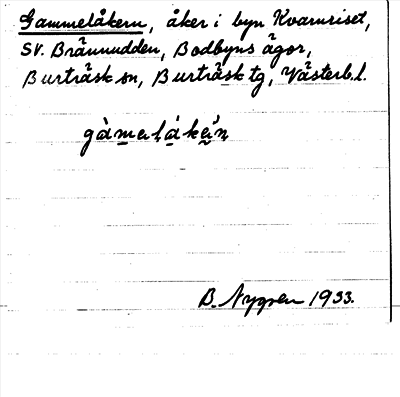 Gammelåkern, åker i byn Kvarnriset,
SV. Brännudden, Bodbyns ägor,
Burträsk sn, Burträsk tg, Västerb.l.
B. Nygren 1933.